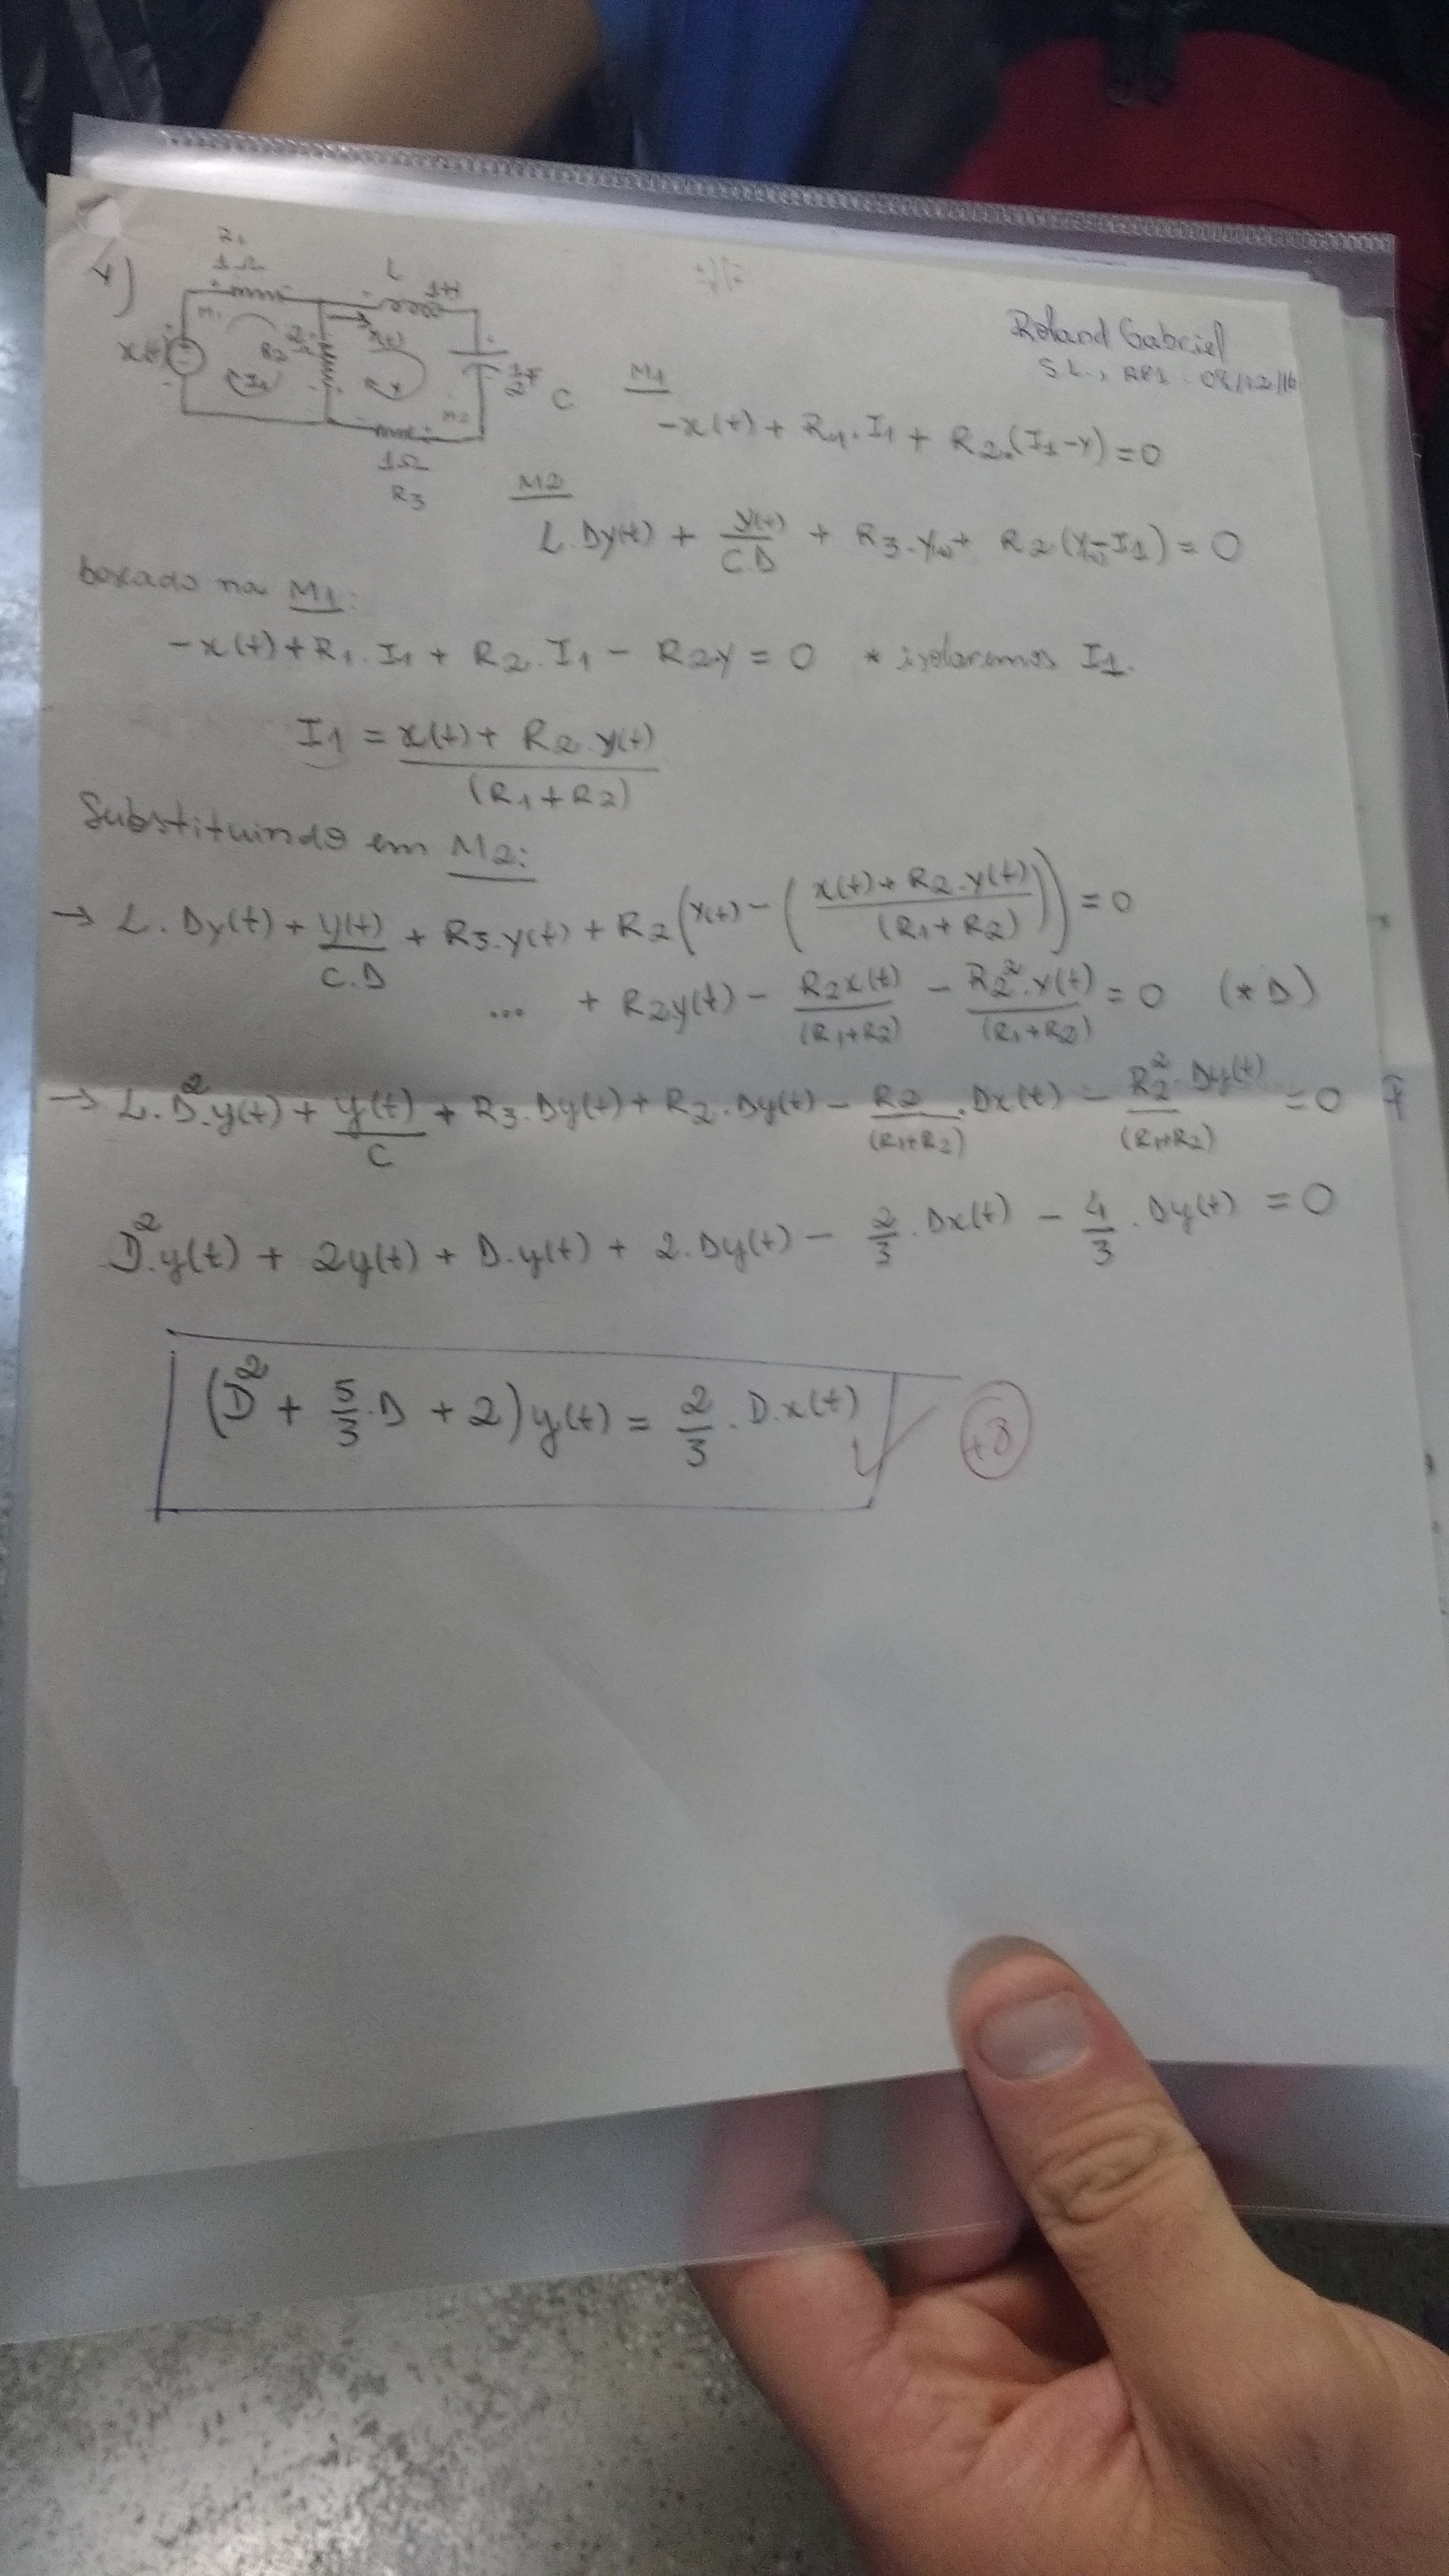 4)
1Ω
L
1H
x(t)
M1
R2
2Ω
y(t)
I1
y
M2
1/2 F
C
1Ω
R3
Roland Gabriel
S L., AP1 -
M1
-x(t) + R1.I1 + R2.(I1-y) = 0
M2
L.Dy(t) + y(t)/C.D + R3.y(t) + R2(y(t)-I1) = 0
na M1:
-x(t) + R1.I1 + R2.I1 - R2y = 0 * isolaremos I1.
I1 = x(t) + R2.y(t)/(R1+R2)
Substituindo em M2:
→ L.Dy(t) + y(t)/C.D + R3.y(t) + R2(y(t) - (x(t) + R2.y(t)/(R1+R2))) = 0
... + R2y(t) - R2x(t)/(R1+R2) - R2².y(t)/(R1+R2) = 0 (*D)
→ L.D².y(t) + y(t)/C + R3.Dy(t) + R2.Dy(t) - R2/(R1+R2).Dx(t) - R2²/(R1+R2).Dy(t) = 0
D².y(t) + 2y(t) + D.y(t) + 2.Dy(t) - 2/3.Dx(t) - 4/3.Dy(t) = 0
(D² + 5/3.D + 2)y(t) = 2/3.D.x(t)